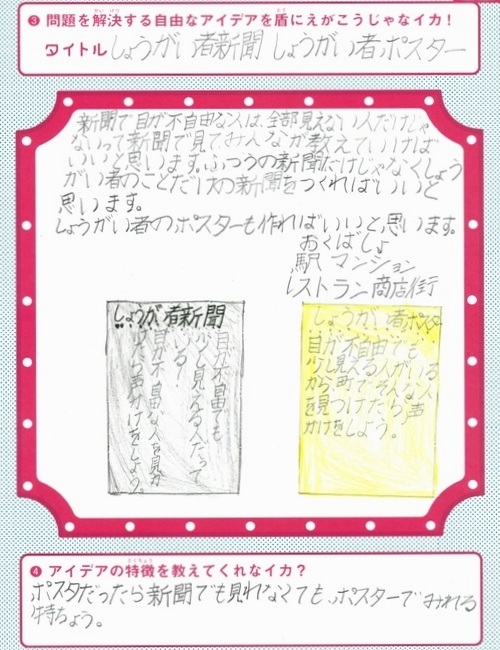 ❸ 問題を解決する自由なアイデアを盾にえがこうじゃなイカ！
タイトル しょうがい者新聞 しょうがい者ポスター
新聞で目が不自由な人は、全部見えない人だけじゃ
ないって新聞で見てみんなが教えていけば
いいと思います。ふつうの新聞だけじゃなくしょう
がい者のことだけの新聞をつくればいいと
思います。
しょうがい者のポスターも作ればいいと思います。
おくばしょ
駅 マンション
レストラン 商店街
しょうがい者新聞
目が不自由でも
少し見える人だって
いる!
目が不自由な人を見か
けたら声かけをしよう。
しょうがい者ポスター
目が不自由でも
少し見える人がいる
から町でそんな人
を見つけたら声
かけをしよう。
❹ アイデアの特徴を教えてくれなイカ？
ポスタだったら新聞でも見れなくても、ポスターでみれる
特ちょう。